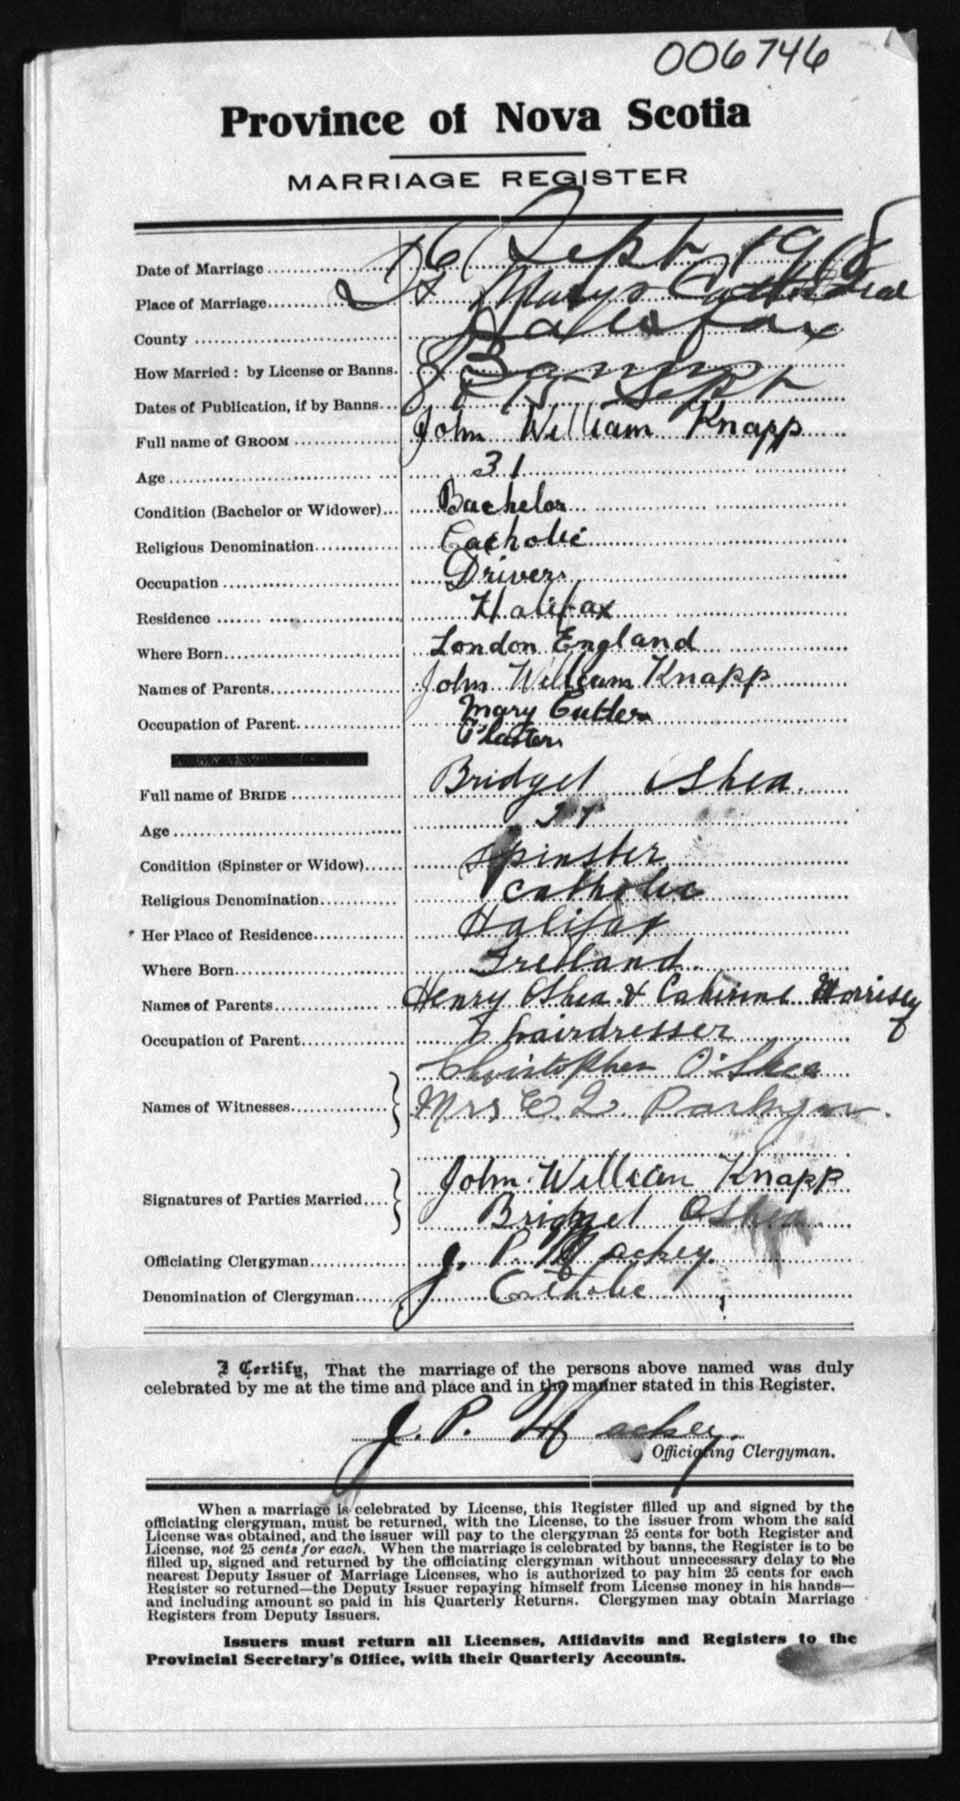 006746
Province of Nova Scotia
MARRIAGE REGISTER
Date of Marriage 16 Sept 1918
Place of Marriage St Marys Cathedral
County Halifax
How Married: by License or Banns. Banns
Dates of Publication, if by Banns 8 & 15 Sept
Full name of GROOM John William Knapp
Age 31
Condition (Bachelor or Widower) Bachelor
Religious Denomination Catholic
Occupation Driver
Residence Halifax
Where Born London England
Names of Parents John William Knapp
Mary Cutler
Occupation of Parent Plaster
Full name of BRIDE Bridget Shea
Age
Condition (Spinster or Widow) Spinster
Religious Denomination Catholic
Her Place of Residence Halifax
Where Born Ireland
Names of Parents Henry Oshea & Catherine Morrisey
Occupation of Parent hairdresser
Names of Witnesses Christopher O'Shea
Mrs
Signatures of Parties Married John William Knapp
Bridget Oshea
Officiating Clergyman J. P. Mackey.
Denomination of Clergyman Catholic
I Certify, That the marriage of the persons above named was duly
celebrated by me at the time and place and in the manner stated in this Register.
J. P. Mackey.
Officiating Clergyman.
When a marriage is celebrated by License, this Register filled up and signed by the
officiating clergyman, must be returned, with the License, to the issuer from whom the said
License was obtained, and the issuer will pay to the clergyman 25 cents for both Register and
License, not 25 cents for each. When the marriage is celebrated by banns, the Register is to be
filled up, signed and returned by the officiating clergyman without unnecessary delay to the
nearest Deputy Issuer of Marriage Licenses, who is authorized to pay him 25 cents for each
Register so returned—the Deputy Issuer repaying himself from License money in his hands—
and including amount so paid in his Quarterly Returns. Clergymen may obtain Marriage
Registers from Deputy Issuers.
Issuers must return all Licenses, Affidavits and Registers to the
Provincial Secretary's Office, with their Quarterly Accounts.